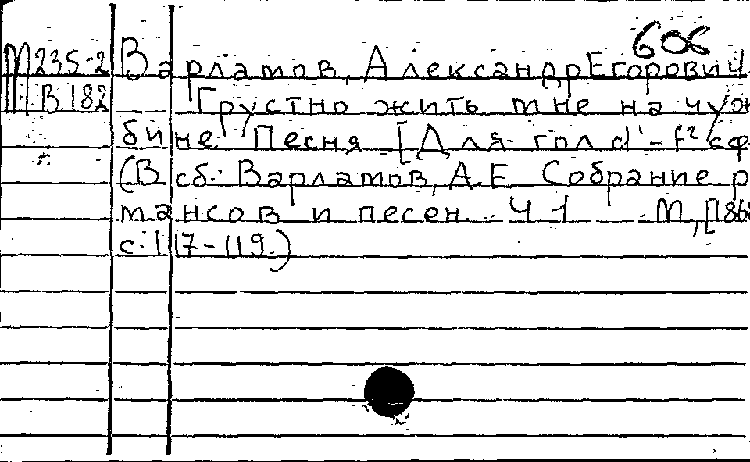 606
М235-2 Варламов, Александр Егорович
В182 Грустно жить мне на чуж
бине. Песня. [Для гол. d¹-f² с ф
(В сб.: Варламов, А.Е. Собрание р
мансов и песен. Ч 1 М., [186
с. 117-119.)